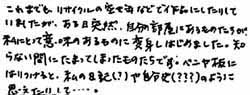 これまでも、リサイクルの空せ湾などでイ作品にしたりして
いましたが、ある日突然、自分の部屋にあるものたちが、
私にとって意味のあるものに変身しはじめました。知
らない間にたまってしまったものたちです。ベニヤ板に
はりつけると、私の日記(?)や自分史(???)のように
思えたりして……。